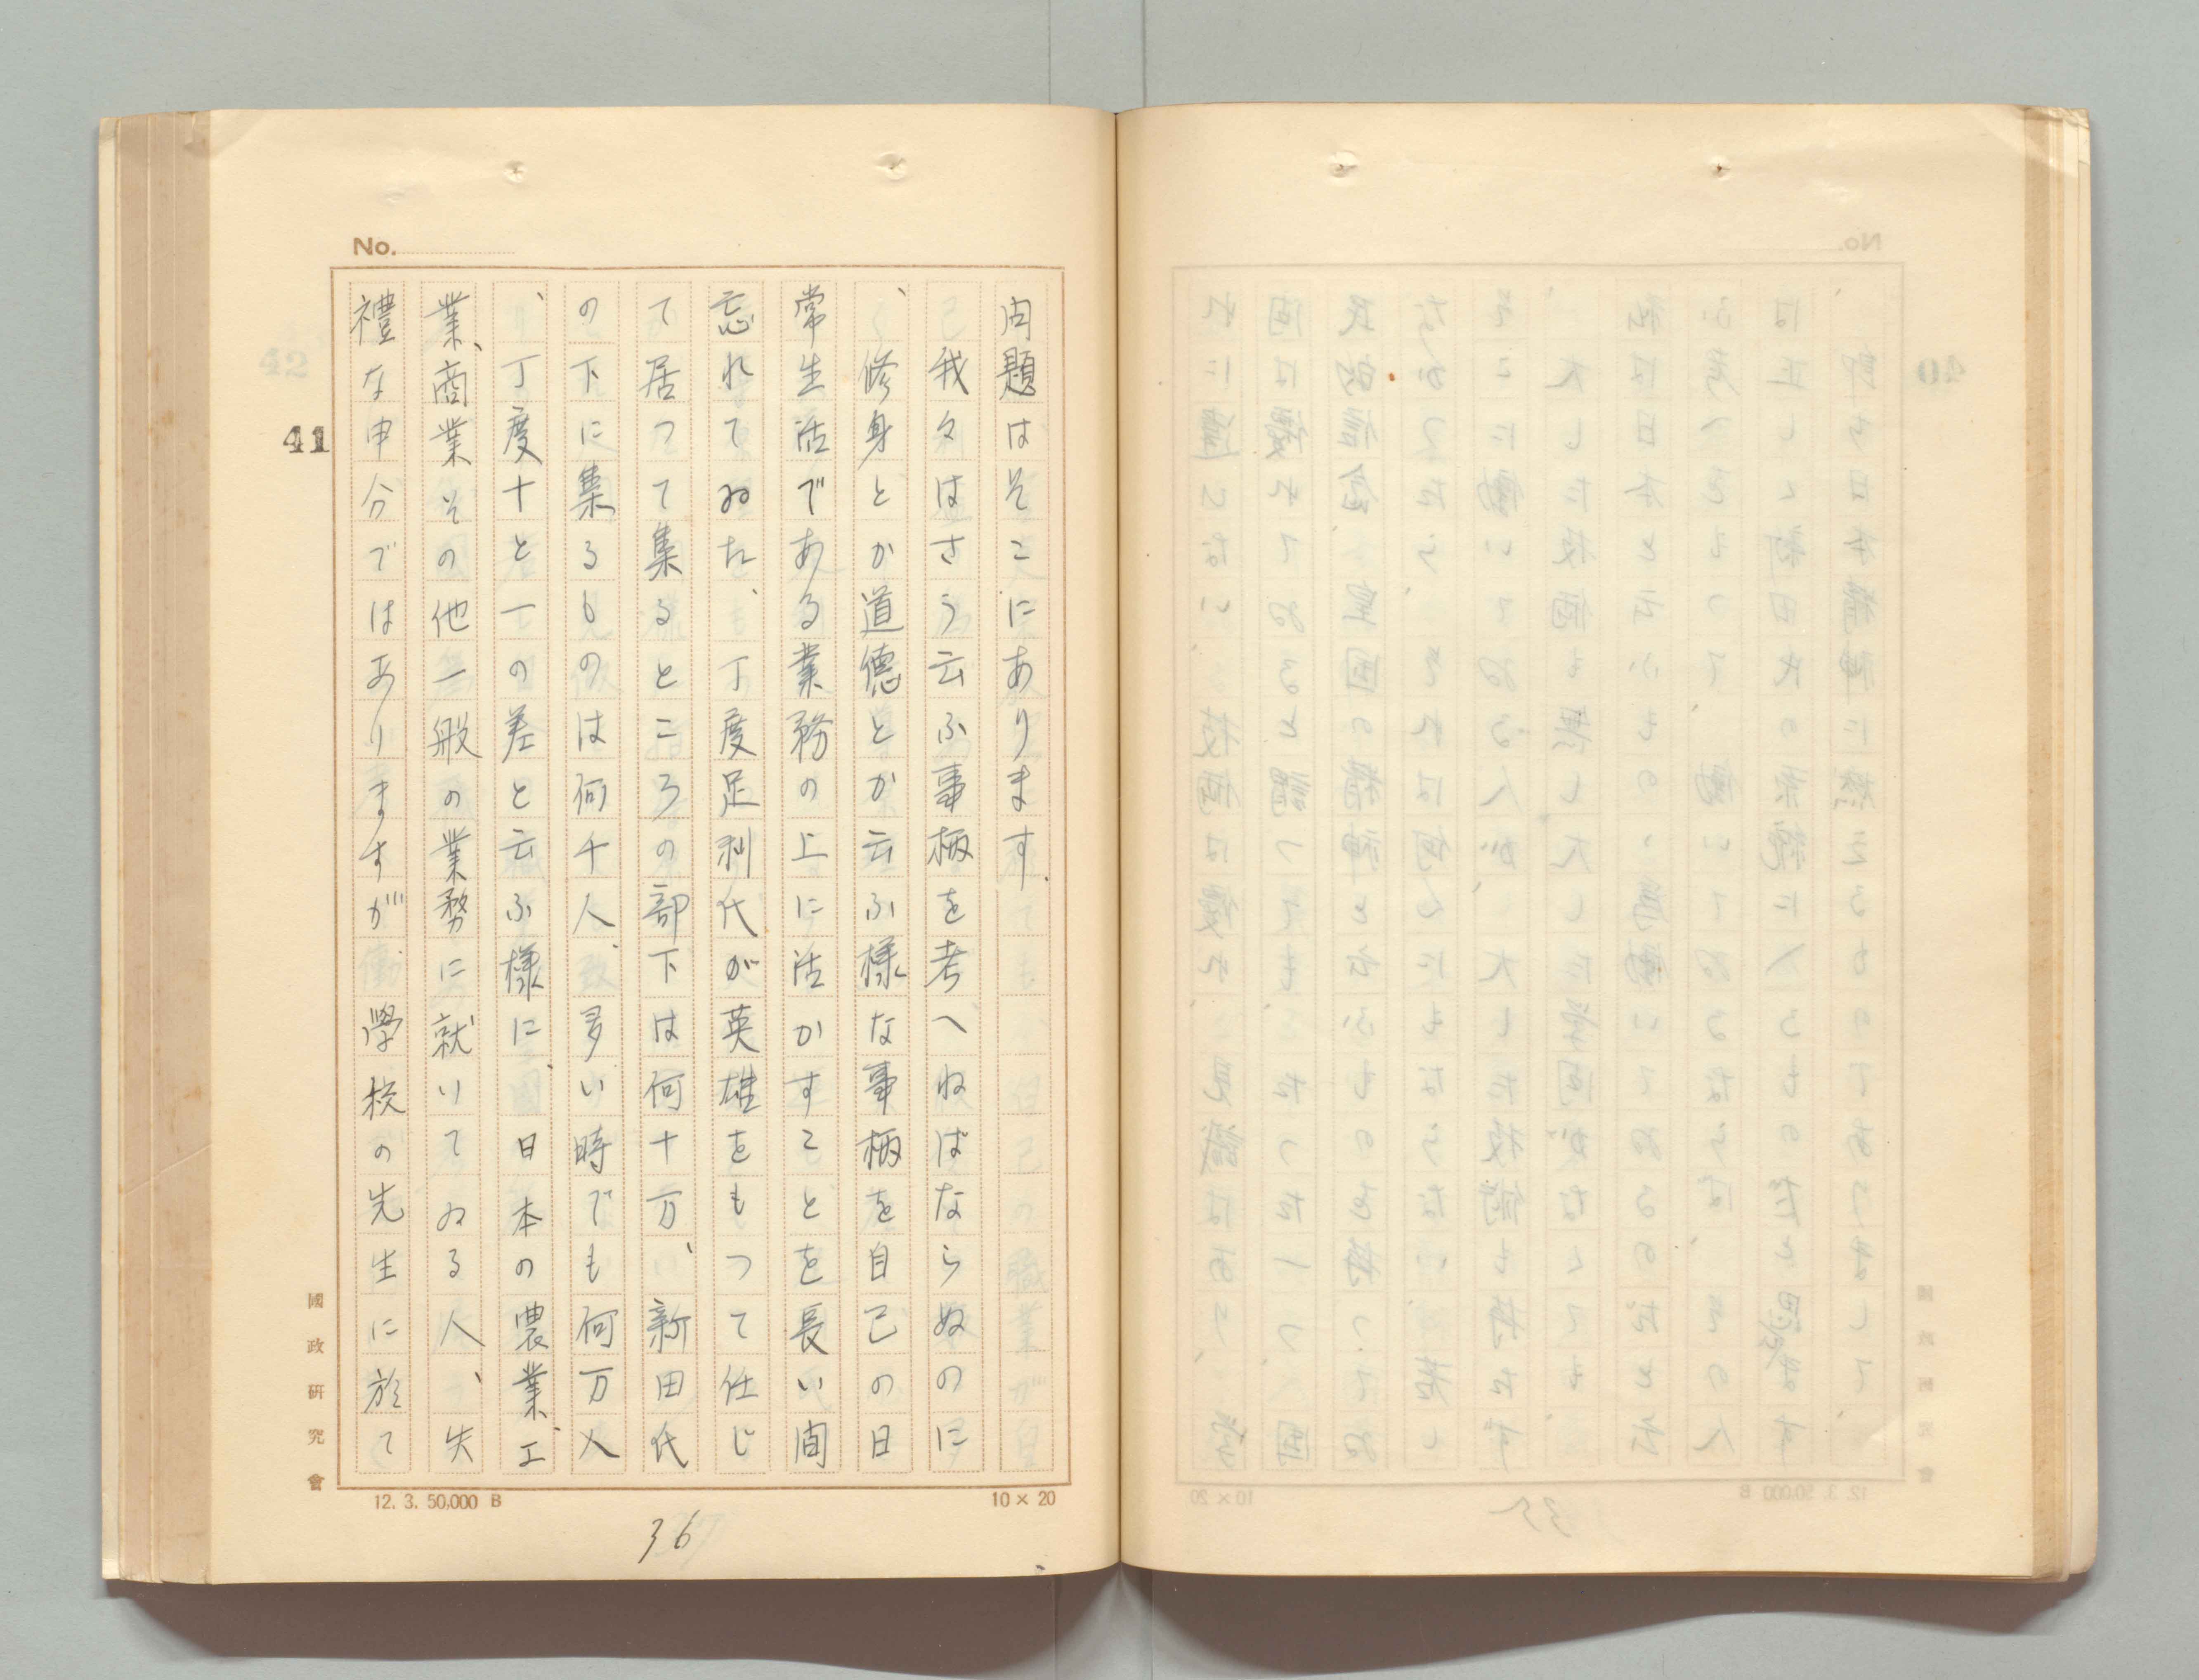 No.
問題はそこにあります.
我々はさう云ふ事柄を考へねばならぬのに
、修身とか道徳とか云ふ様な事柄を自己の日
常生活である業務の上に活かすことを長い間
忘れてゐた、丁度足利氏が英雄をもつて任じ
て居つて集るところの部下は何十万、新田氏
の下に集るものは何千人、多い時でも何万人
、丁度十と一の差と云ふ様に、日本の農業、工
業、商業その他一般の業務に就いてゐる人、失
禮な申分ではありますが、學校の先生に於て
41
國政研究會
12. 3. 50,000 B
10×20
36